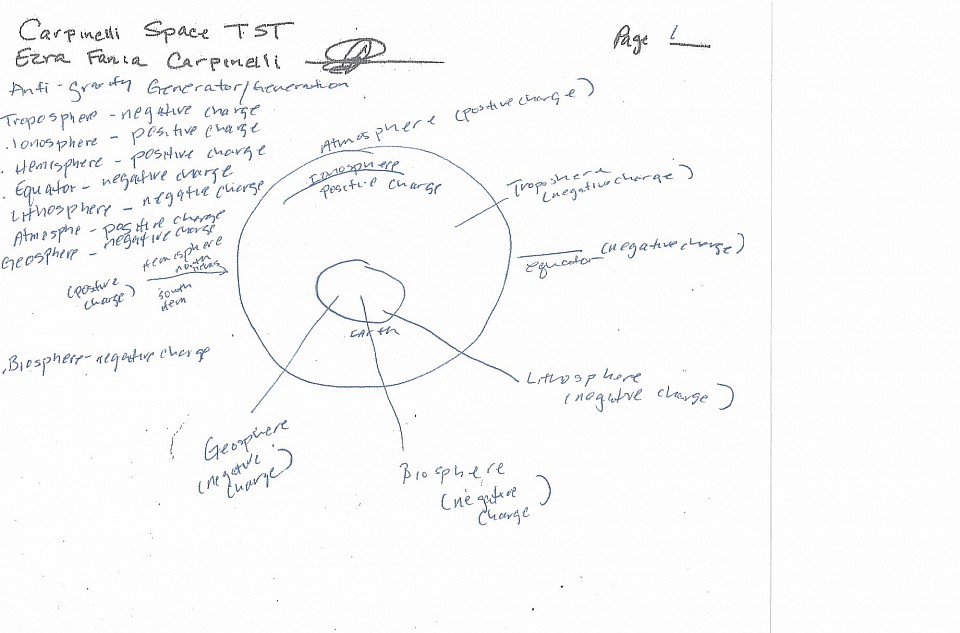 Carpinelli Space TST
Page 1
Ezra Fania Carpinelli
Anti-gravity Generator/Generation
Troposphere - negative charge
. Ionosphere - positive charge
. Hemisphere - positive charge
. Equator - negative charge
Lithosphere - negative charge
Atmosphe - positive charge
Geosphere - negative charge
Atmosphere (positive charge)
Ionosphere
positive charge
Troposhere
(negative charge)
(negative charge)
equator
Hemisphere
north
(positive
charge)
south
hem
Earth
. Biosphere - negative charge
Lithosphere
(negative charge)
Geosphere
(negative
charge)
Biosphere
(negative
charge)